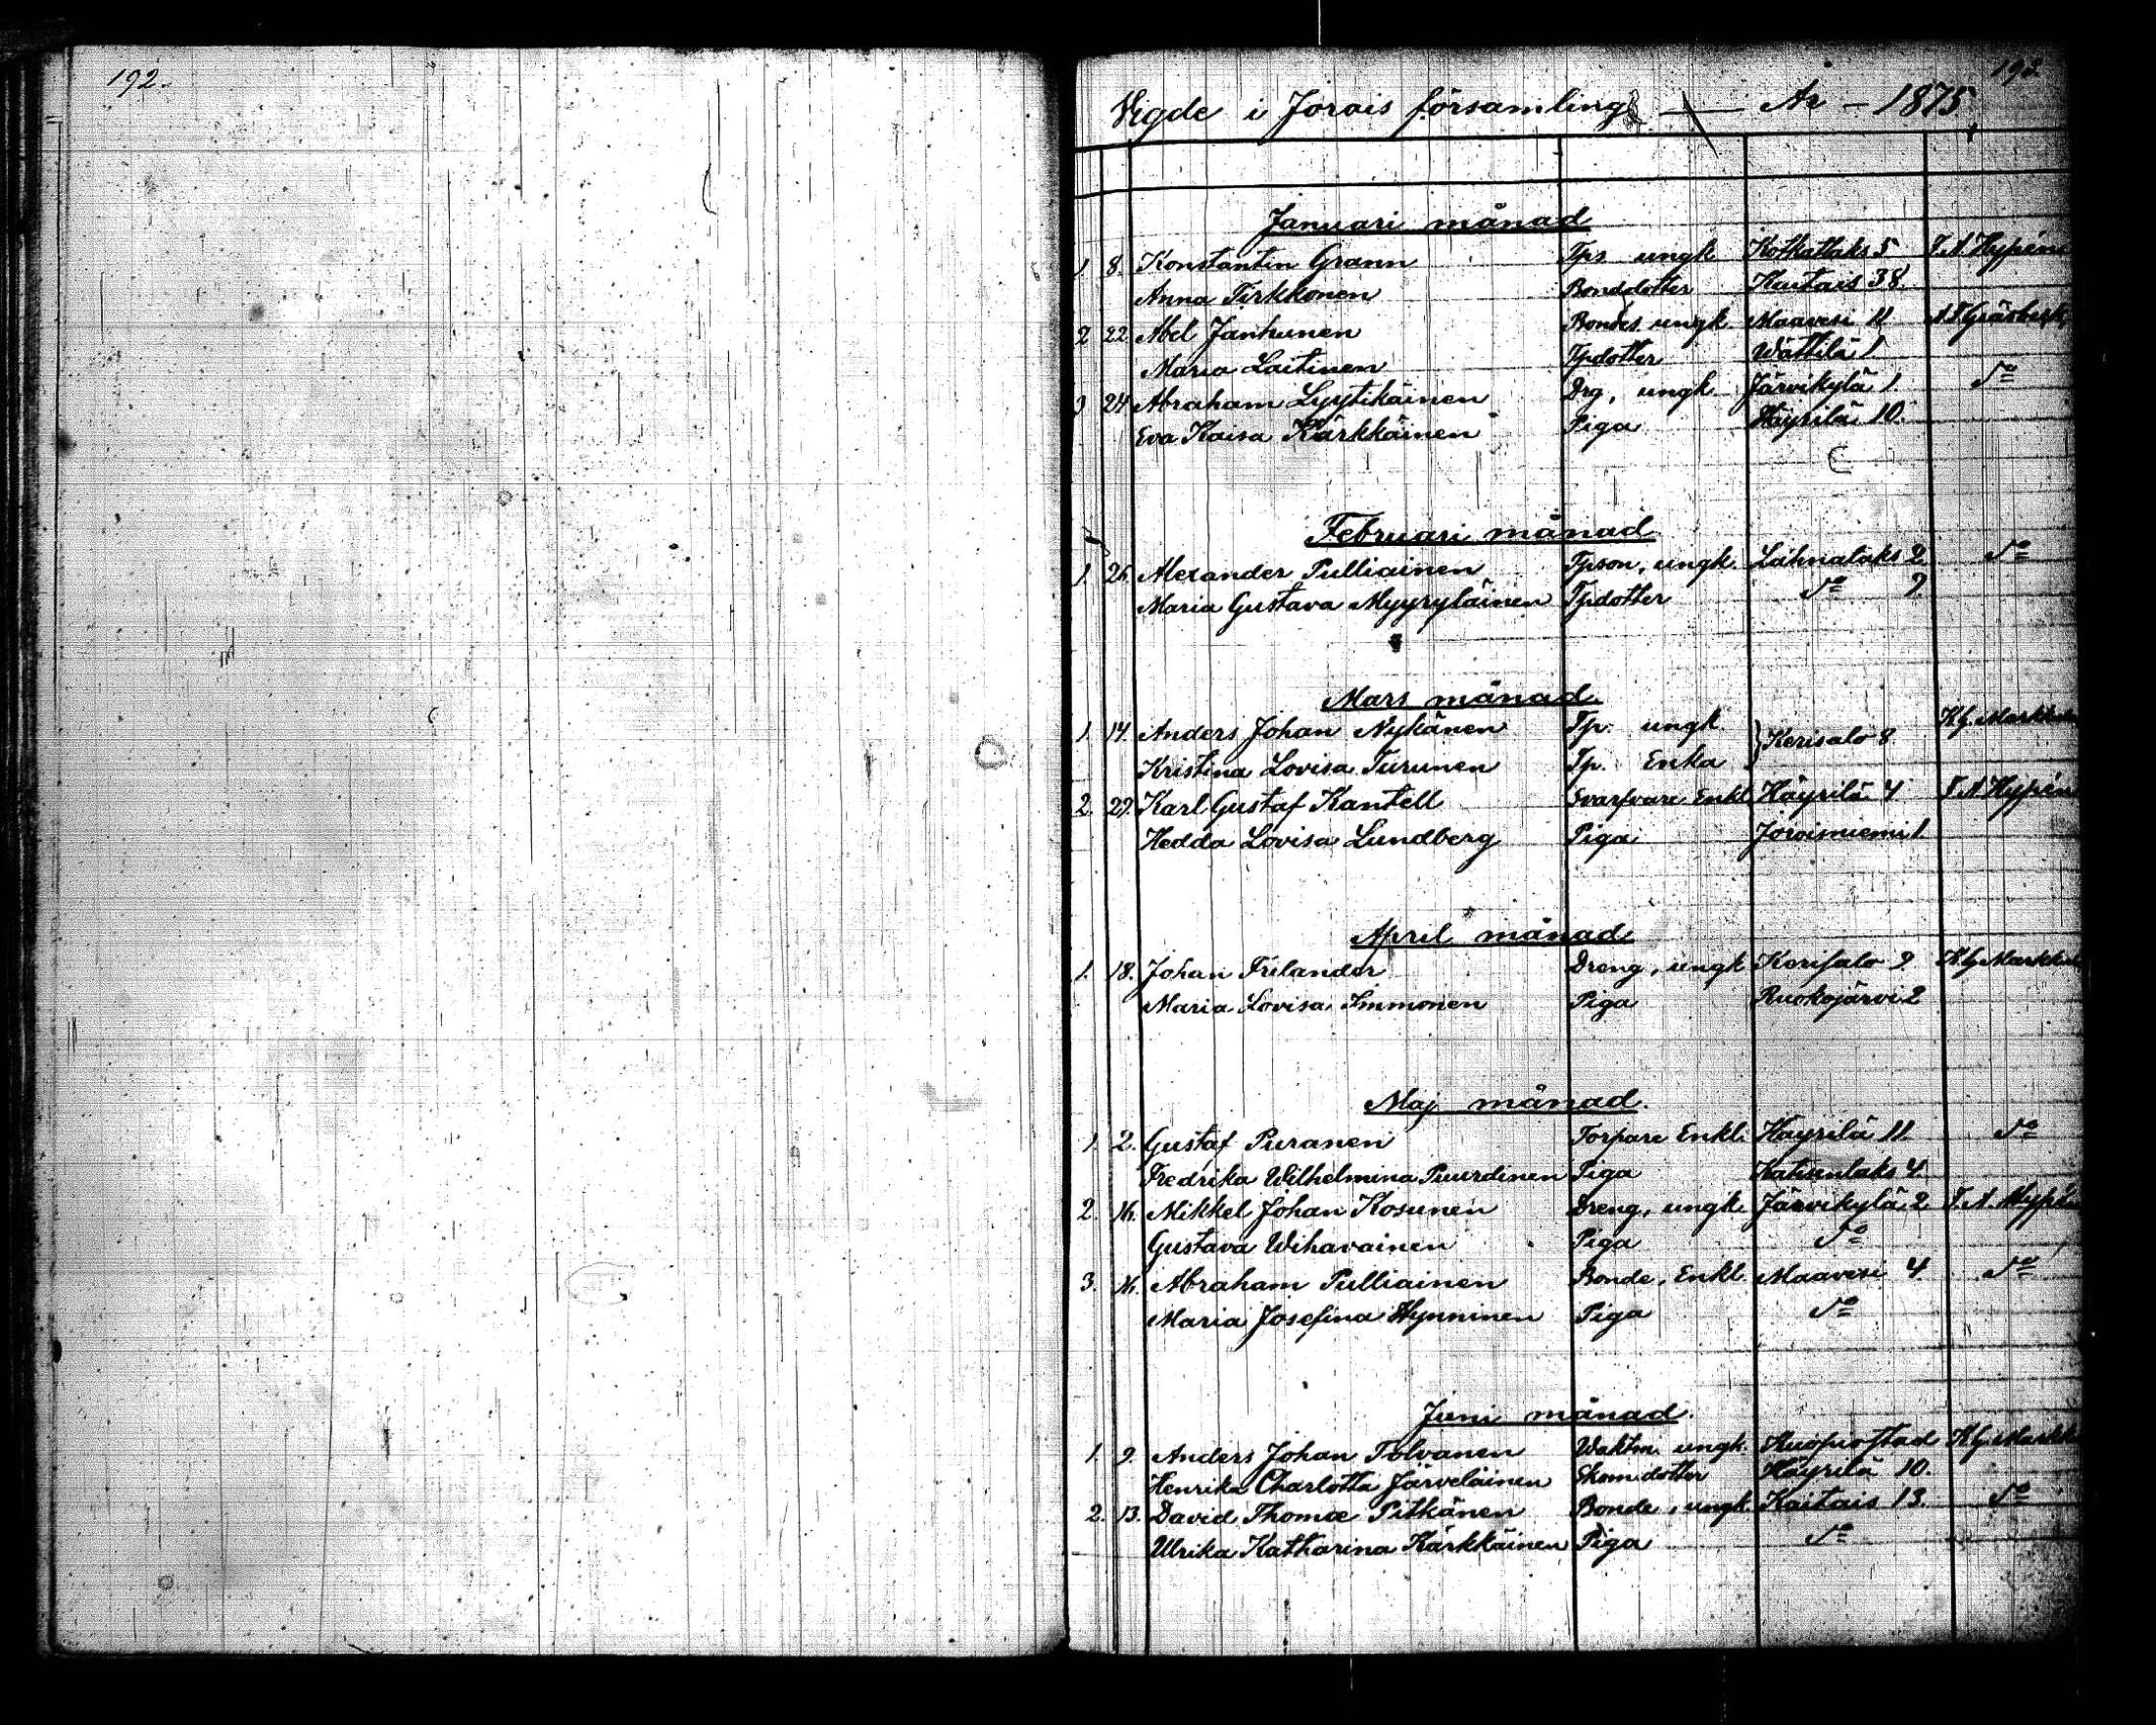 192.
192
Vigde i Jorois församling År - 1875
Januari månad
1 8. Konstantin Grann Tps ungk Kotkatlaks 5 F. A. Hypén
Anna Tirkkonen Bonddotter Kaitais 38.
2 22 Abel Janhunen Bondes. ungk Maavesi 11
Maria Laitinen Tpdotter Wättilä 1
3 24 Abraham Lyytikäinen Drg, ungk Järvikylä 1 Do
Eva Kaisa Kärkkäinen Piga Häyrilä 10.
Februari månad
1. 26 Alexander Pulliainen Tpson, ungk. Lahnalaks 2 Do
Maria Gustava Myyryläinen Tpdotter Do 7.
Mars månad
1. 14. Anders Johan Nykänen Tp. ungk Kerisalo 8. K. G. Markku
Kristina Lovisa Turunen Tp. Enka
2. 29. Karl Gustaf Kantell Svarfvare Enkl Häyrilä 4 F. A. Hypén
Hedda Lovisa Lundberg Piga Joroisniemi 1.
April månad
1. 18. Johan Frilander Dreng, ungk Kerisalo 9. K. G. Markku
Maria Lovisa Immonen Piga Ruokojärvi 2
Maj månad.
1. 2. Gustaf Puranen Torpare Enkl. Häyrilä 11. Do
Fredrika Wilhelmina Piga Katisenlaks 4.
2. 16. Mikkel Johan Kosunen Dreng, ungk. Järvikylä 2 F. A. Hypén
Gustava Wihavainen Piga Do
3. 16. Abraham Pulliainen Bonde, Enkl Maavesi 4. Do
Maria Josefina Hynninen Piga Do
Juni månad.
1. 9. Anders Johan Tolvanen Waktm. ungk. Kuopio stad K. G. Markk
Henrika Charlotta Järveläinen Skom. dotter Häyrilä 10.
2. 13. David Thomæ Pitkänen Bonde, ungk. Kaitais 13. Do
Ulrika Katharina Kärkkäinen Piga Do